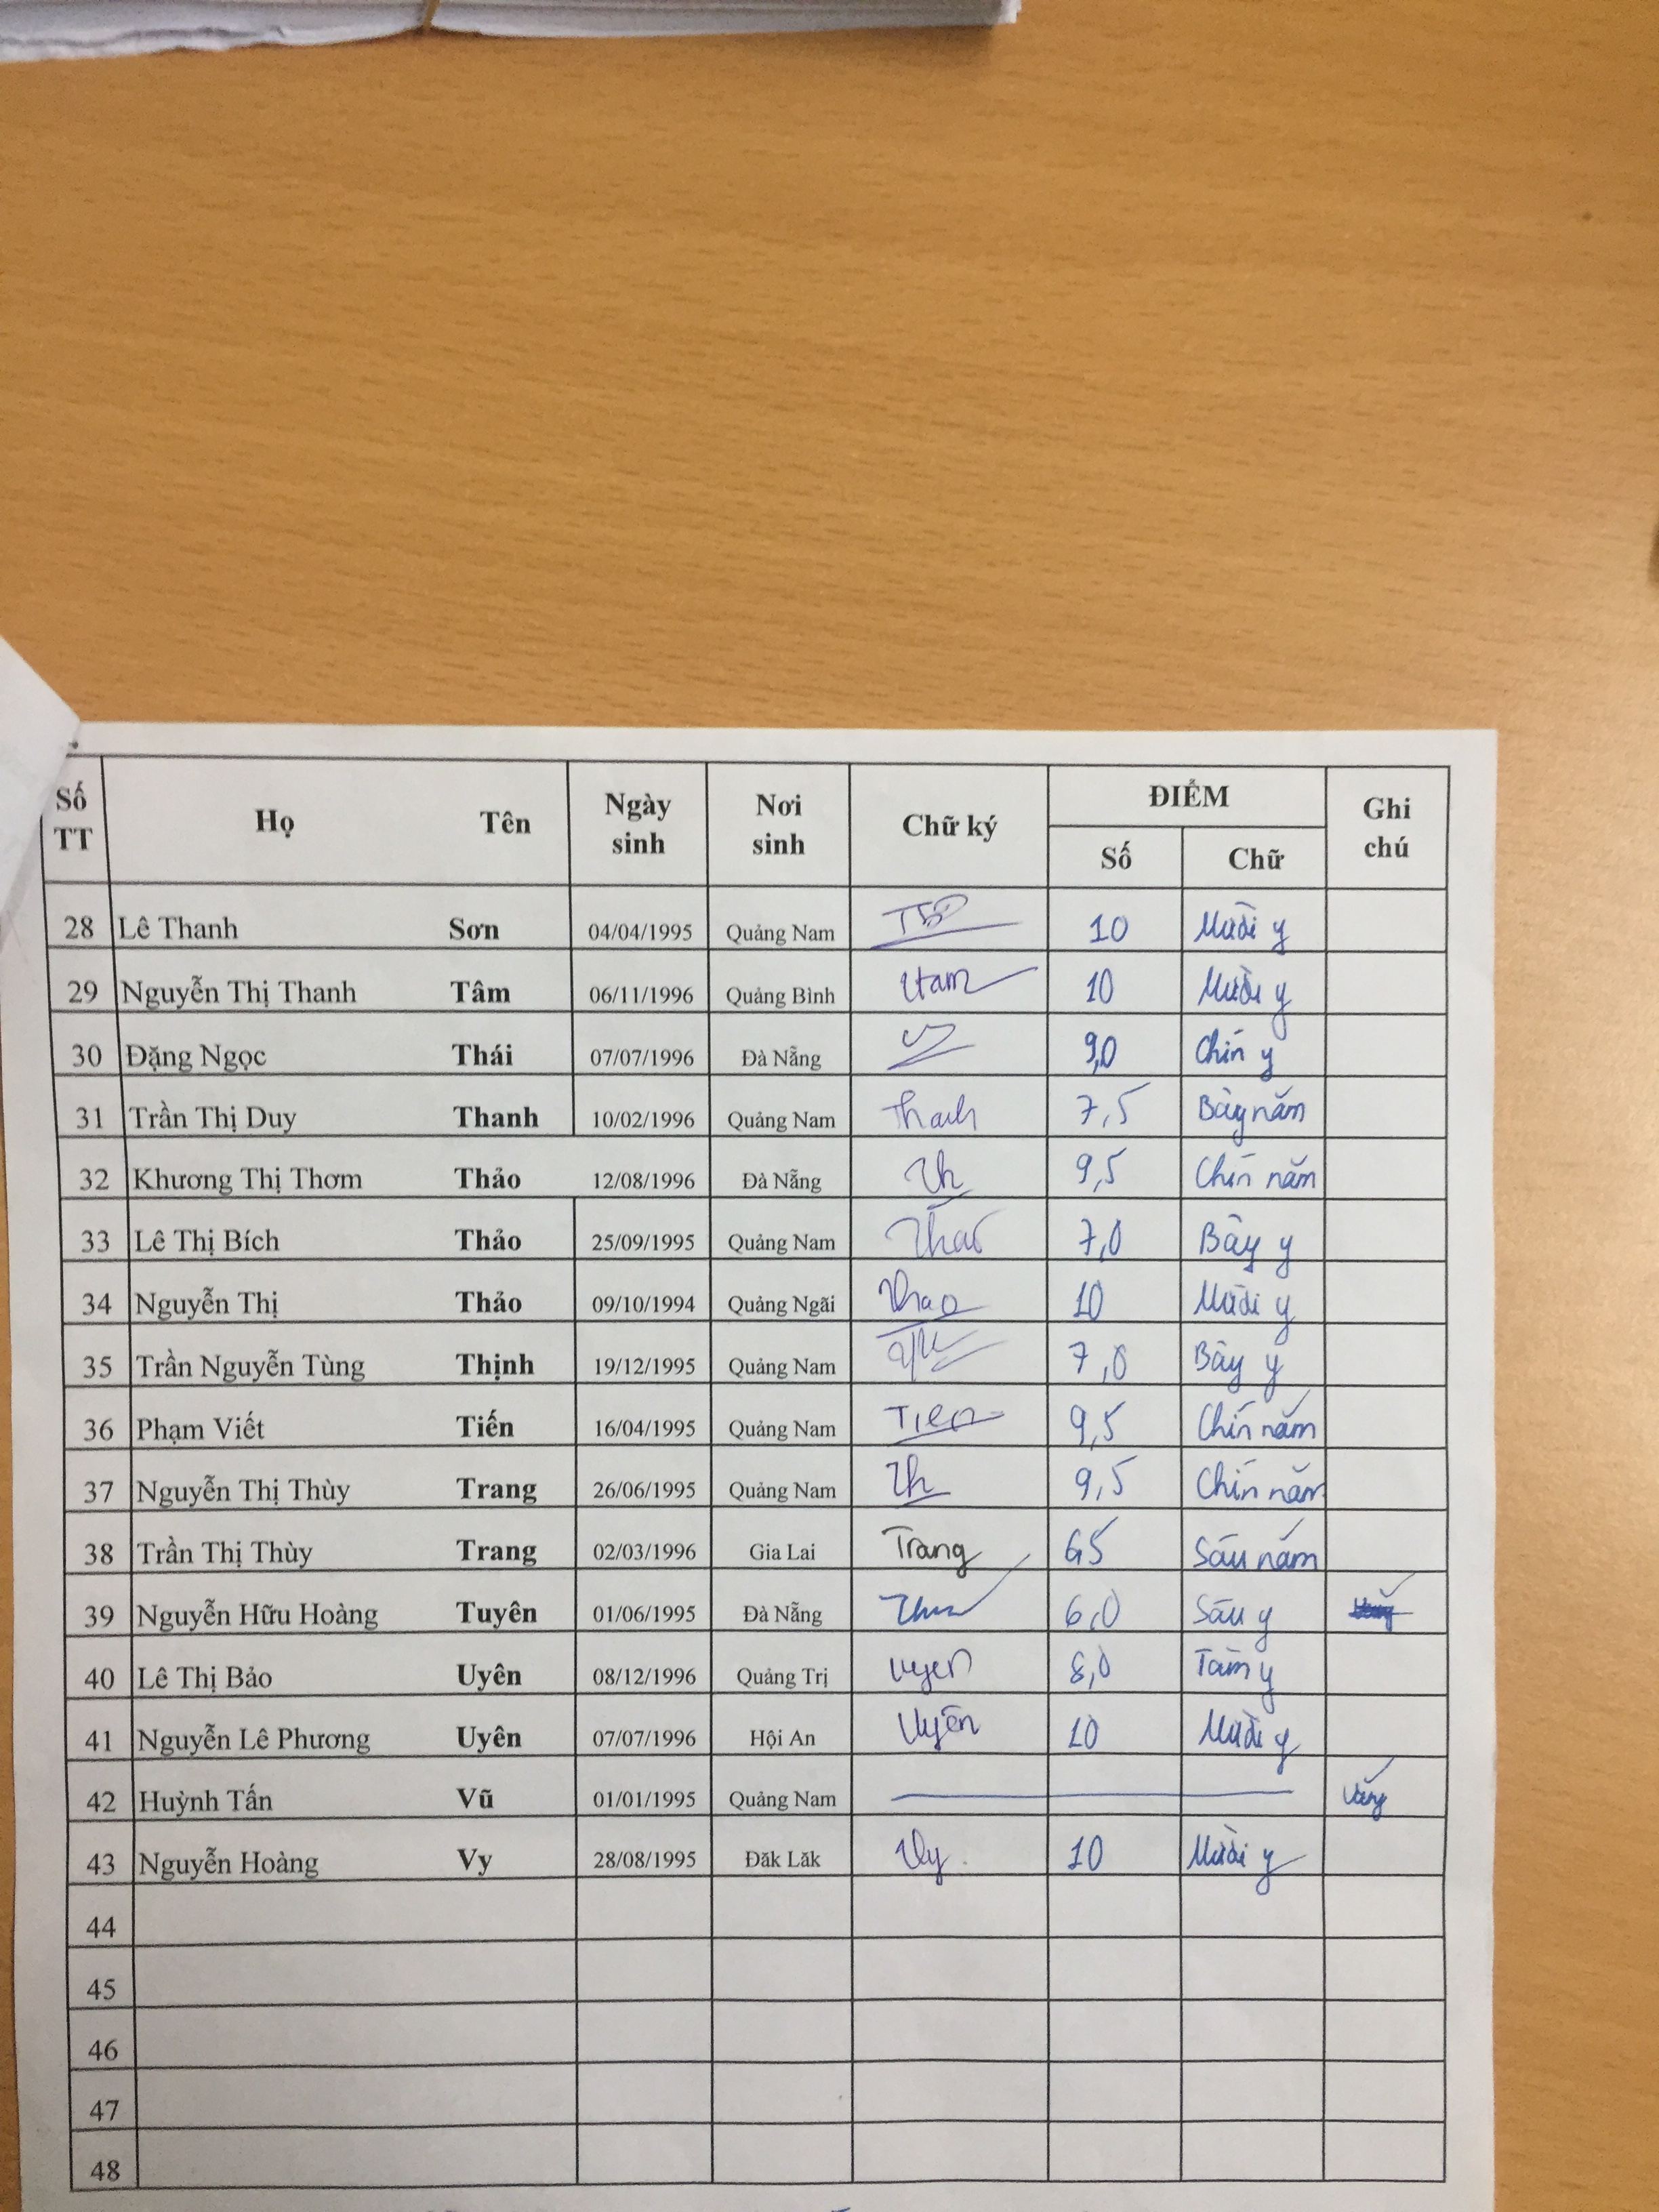 Số TT Họ Tên Ngày sinh Nơi sinh Chữ ký ĐIỂM Ghi chú
Số Chữ
28 Lê Thanh Sơn 04/04/1995 Quảng Nam 10 Mười y
29 Nguyễn Thị Thanh Tâm 06/11/1996 Quảng Bình 10 Mười y
30 Đặng Ngọc Thái 07/07/1996 Đà Nẵng 9,0 Chín y
31 Trần Thị Duy Thanh 10/02/1996 Quảng Nam Thanh 7,5 Bảy năm
32 Khương Thị Thơm Thảo 12/08/1996 Đà Nẵng Th 9,5 Chín năm
33 Lê Thị Bích Thảo 25/09/1995 Quảng Nam Thảo 7,0 Bảy y
34 Nguyễn Thị Thảo 09/10/1994 Quảng Ngãi Thao 10 Mười y
35 Trần Nguyễn Tùng Thịnh 19/12/1995 Quảng Nam 7,0 Bảy y
36 Phạm Viết Tiến 16/04/1995 Quảng Nam Tien 9,5 Chín năm
37 Nguyễn Thị Thùy Trang 26/06/1995 Quảng Nam 9,5 Chín năm
38 Trần Thị Thùy Trang 02/03/1996 Gia Lai Trang 6,5 Sáu năm
39 Nguyễn Hữu Hoàng Tuyên 01/06/1995 Đà Nẵng 6,0 Sáu y
40 Lê Thị Bảo Uyên 08/12/1996 Quảng Trị Uyen 8,0 Tám y
41 Nguyễn Lê Phương Uyên 07/07/1996 Hội An Uyên 10 Mười y
42 Huỳnh Tấn Vũ 01/01/1995 Quảng Nam Vắng
43 Nguyễn Hoàng Vy 28/08/1995 Đăk Lăk Vy 10 Mười y
44
45
46
47
48